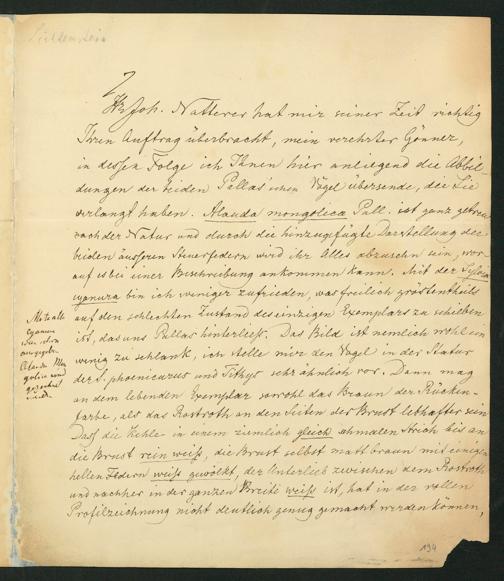 Lichtenstein
Hr Joh. Natterer hat mir seiner Zeit richtig
Ihren Auftrag überbracht, mein verehrter Gönner,
in dessen Folge ich Ihnen hier anliegend die Abbil-
dungen der beiden Pallas'schen Vögel übersende, die Sie
verlangt haben. Alauda mongolica Pall. ist ganz getreu
nach der Natur und durch die hinzugefügte Darstellung der
beiden äussern Steuerfedern wird ihr Alles abzusehn sein, wor-
auf es bei einer Beschreibung ankommen kann. Mit der Sylvia
cyanura bin ich weniger zufrieden, was freilich grösstentheils
auf den schlechten Zustand des einzigen Exemplars zu schieben
ist, das uns Pallas hinterliess. Das Bild ist nemlich wohl ein
wenig zu schlank, ich stelle mir den Vogel in der Statur
der S. phoenicurus und Tithys sehr ähnlich vor. Dann mag
an dem lebenden Exemplar sowohl das Braun der Rücken-
farbe, als das Rostroth an den Seiten der Brust lebhafter sein
Dass die Kehle in einem ziemlich gleich schmalen Strich bis an
die Brust rein weiss, die Brust selbst matt braun mit einigen
hellen Federn weiss gewölkt, der Unterleib zwischen dem Rostroth
und nachher in der ganzen Breite weiss ist, hat in der vollen
Profilzeichnung nicht deutlich genug gemacht werden können,
cyanura
Alauda Mon
golica und
194